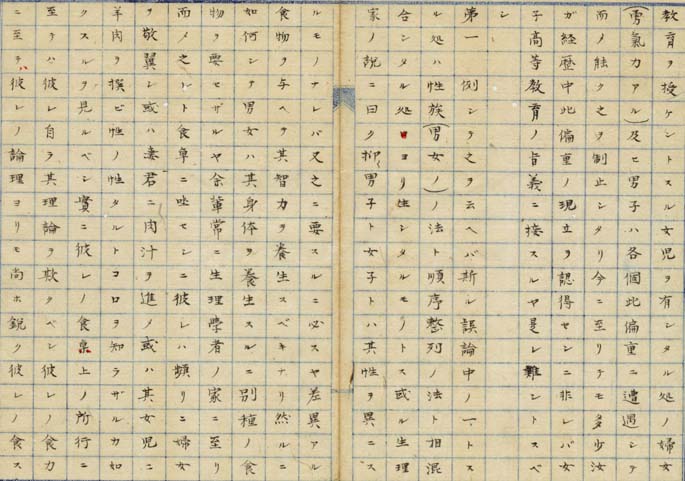 教育ヲ授ケントスル女児ヲ有シタル処ノ婦女
(勇氣力アル)及ヒ男子ハ各個此偏重ニ遭遇シテ
而ノ能ク之ヲ制止シタリ今ニ至リテモ多少汝
ガ経歴中此偏重ノ現立ヲ認得セシニ非レバ女
子高等教育ノ旨義ニ接スルヤ是レ難シトスベ
シ
第一 例シテ之ヲ云ヘバ斯ル誤論中ノ一トス
ル処ハ性族(男女ノ)ノ法ト順序整列ノ法ト相混
合シタル処ヨリ生シタルモノトス或ル生理
家ノ説ニ曰ク抑〻男子ト女子トハ其性ヲ異ニス
ルモノナレバ又之ニ要スルニ必スヤ差異アル
食物ヲ与ヘテ其智力ヲ養生スベキナリ然ルニ
如何シテ男女ハ其身体ヲ養生スルニ別種ノ食
物ヲ要セザルヤ余輩常ニ生理學者ノ家ニ至リ
而メ之レト食卓ニ坐セシニ彼レハ頻リニ婦女
ヲ敬翼シ或ハ妻君ニ肉汁ヲ進メ或ハ其女児ニ
羊肉ヲ撰ビ牲ノ牲タルトコロヲ知ラザルカ如
クスルヲ見ルベシ實ニ彼レノ食桌上ノ所行ニ
至テハ彼レ自ラ其理論ヲ欺クベシ彼レノ食力
ニ至テハ彼レノ論理ヨリモ尚ホ鋭ク彼レノ食ス